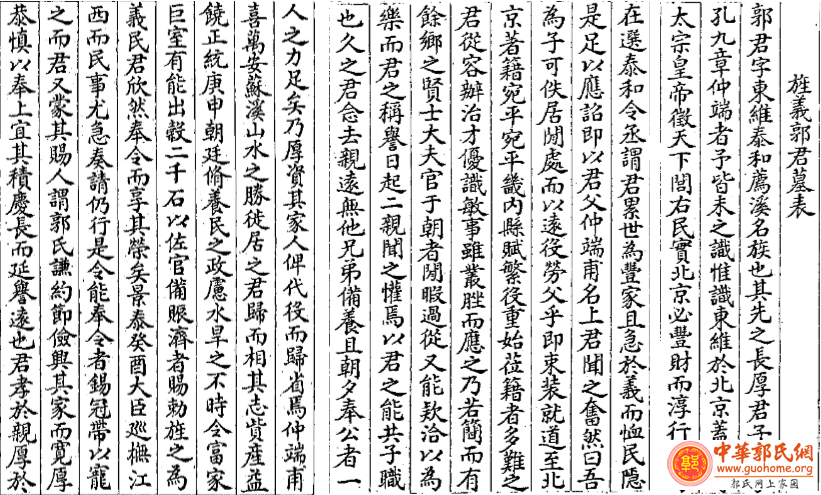 旌義郭君墓表
郭君字東維泰和薦溪名族也其先之長厚君子
孔九章仲端者予皆未之識惟識東維於北京蓋
太宗皇帝徵天下閭右民實北京必豐財而淳行
在選泰和令丞謂君累世為豐家且急於義而恤民隱
是足以應詔即以君父仲端甫名上君聞之奮然曰吾
為子可佚居閒處而以遠役勞父乎即束裝就道至北
京著籍宛平宛平畿內縣賦繁役重始莅籍者多難之
君從容辦治才優識敏事雖叢脞而應之乃若簡而有
餘鄉之賢士大夫官于朝者閒暇過從又能欵洽以為
樂而君之稱譽日起二親聞之懽焉以君之能共子職
也久之君念去親遠無他兄弟備養且朝夕奉公者一
人之力足矣乃厚資其家人俾代役而歸省焉仲端甫
喜萬安蘇溪山水之勝徙居之君歸而相其志貲產益
饒正統庚申朝廷脩養民之政慮水旱之不時令富家
巨室有能出穀二千石以佐官備賑濟者賜勅旌之為
義民君欣然奉令而享其榮矣景泰癸酉大臣巡撫江
西而民事尤急奏請仍行是令能奉令者錫冠帶以寵
之而君又蒙其賜人謂郭氏謙約節儉興其家而寬厚
恭慎以奉上宜其積慶長而延譽遠也君孝於親厚於
中華郭氏網
www.guohome.org
郭氏网上家园